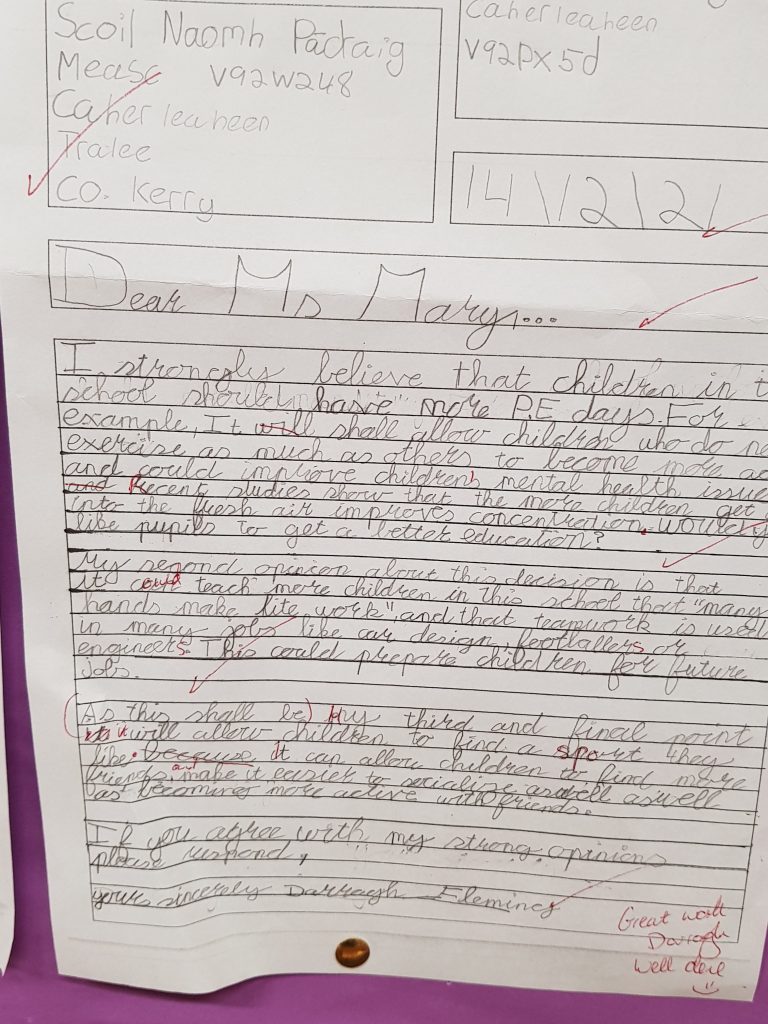 Scoil Naomh Pádraig
Measc V92W248
Caherleaheen
Tralee
Co. Kerry
Caherleaheen
V92PX5d
14\12\21
Dear Ms Mary,...
I strongly believe that children in t
school should have more P.E days. For
example, It will shall allow children who do no
exercise as much as others to become more ac
and could improve children's mental health issue
and Recent studies show that the more children get
into the fresh air improves concentration. Would y
like pupils to get a better education?
My second opinion about this decision is that
it could teach more children in this school that "many
hands make lite work", and that teamwork is used
in many jobs like car design, footballers or
engineers. This could prepare children for future
jobs.
(As this shall be) My third and final point
is it will allow children to find a sport they
like. because it can allow children to find more
friends and make it easier to socialize aswell aswell
as becoming more active with friends.
If you agree with my strong opinions
please respond,
yours sincerely Darragh Fleming
Great work
Darragh
Well done